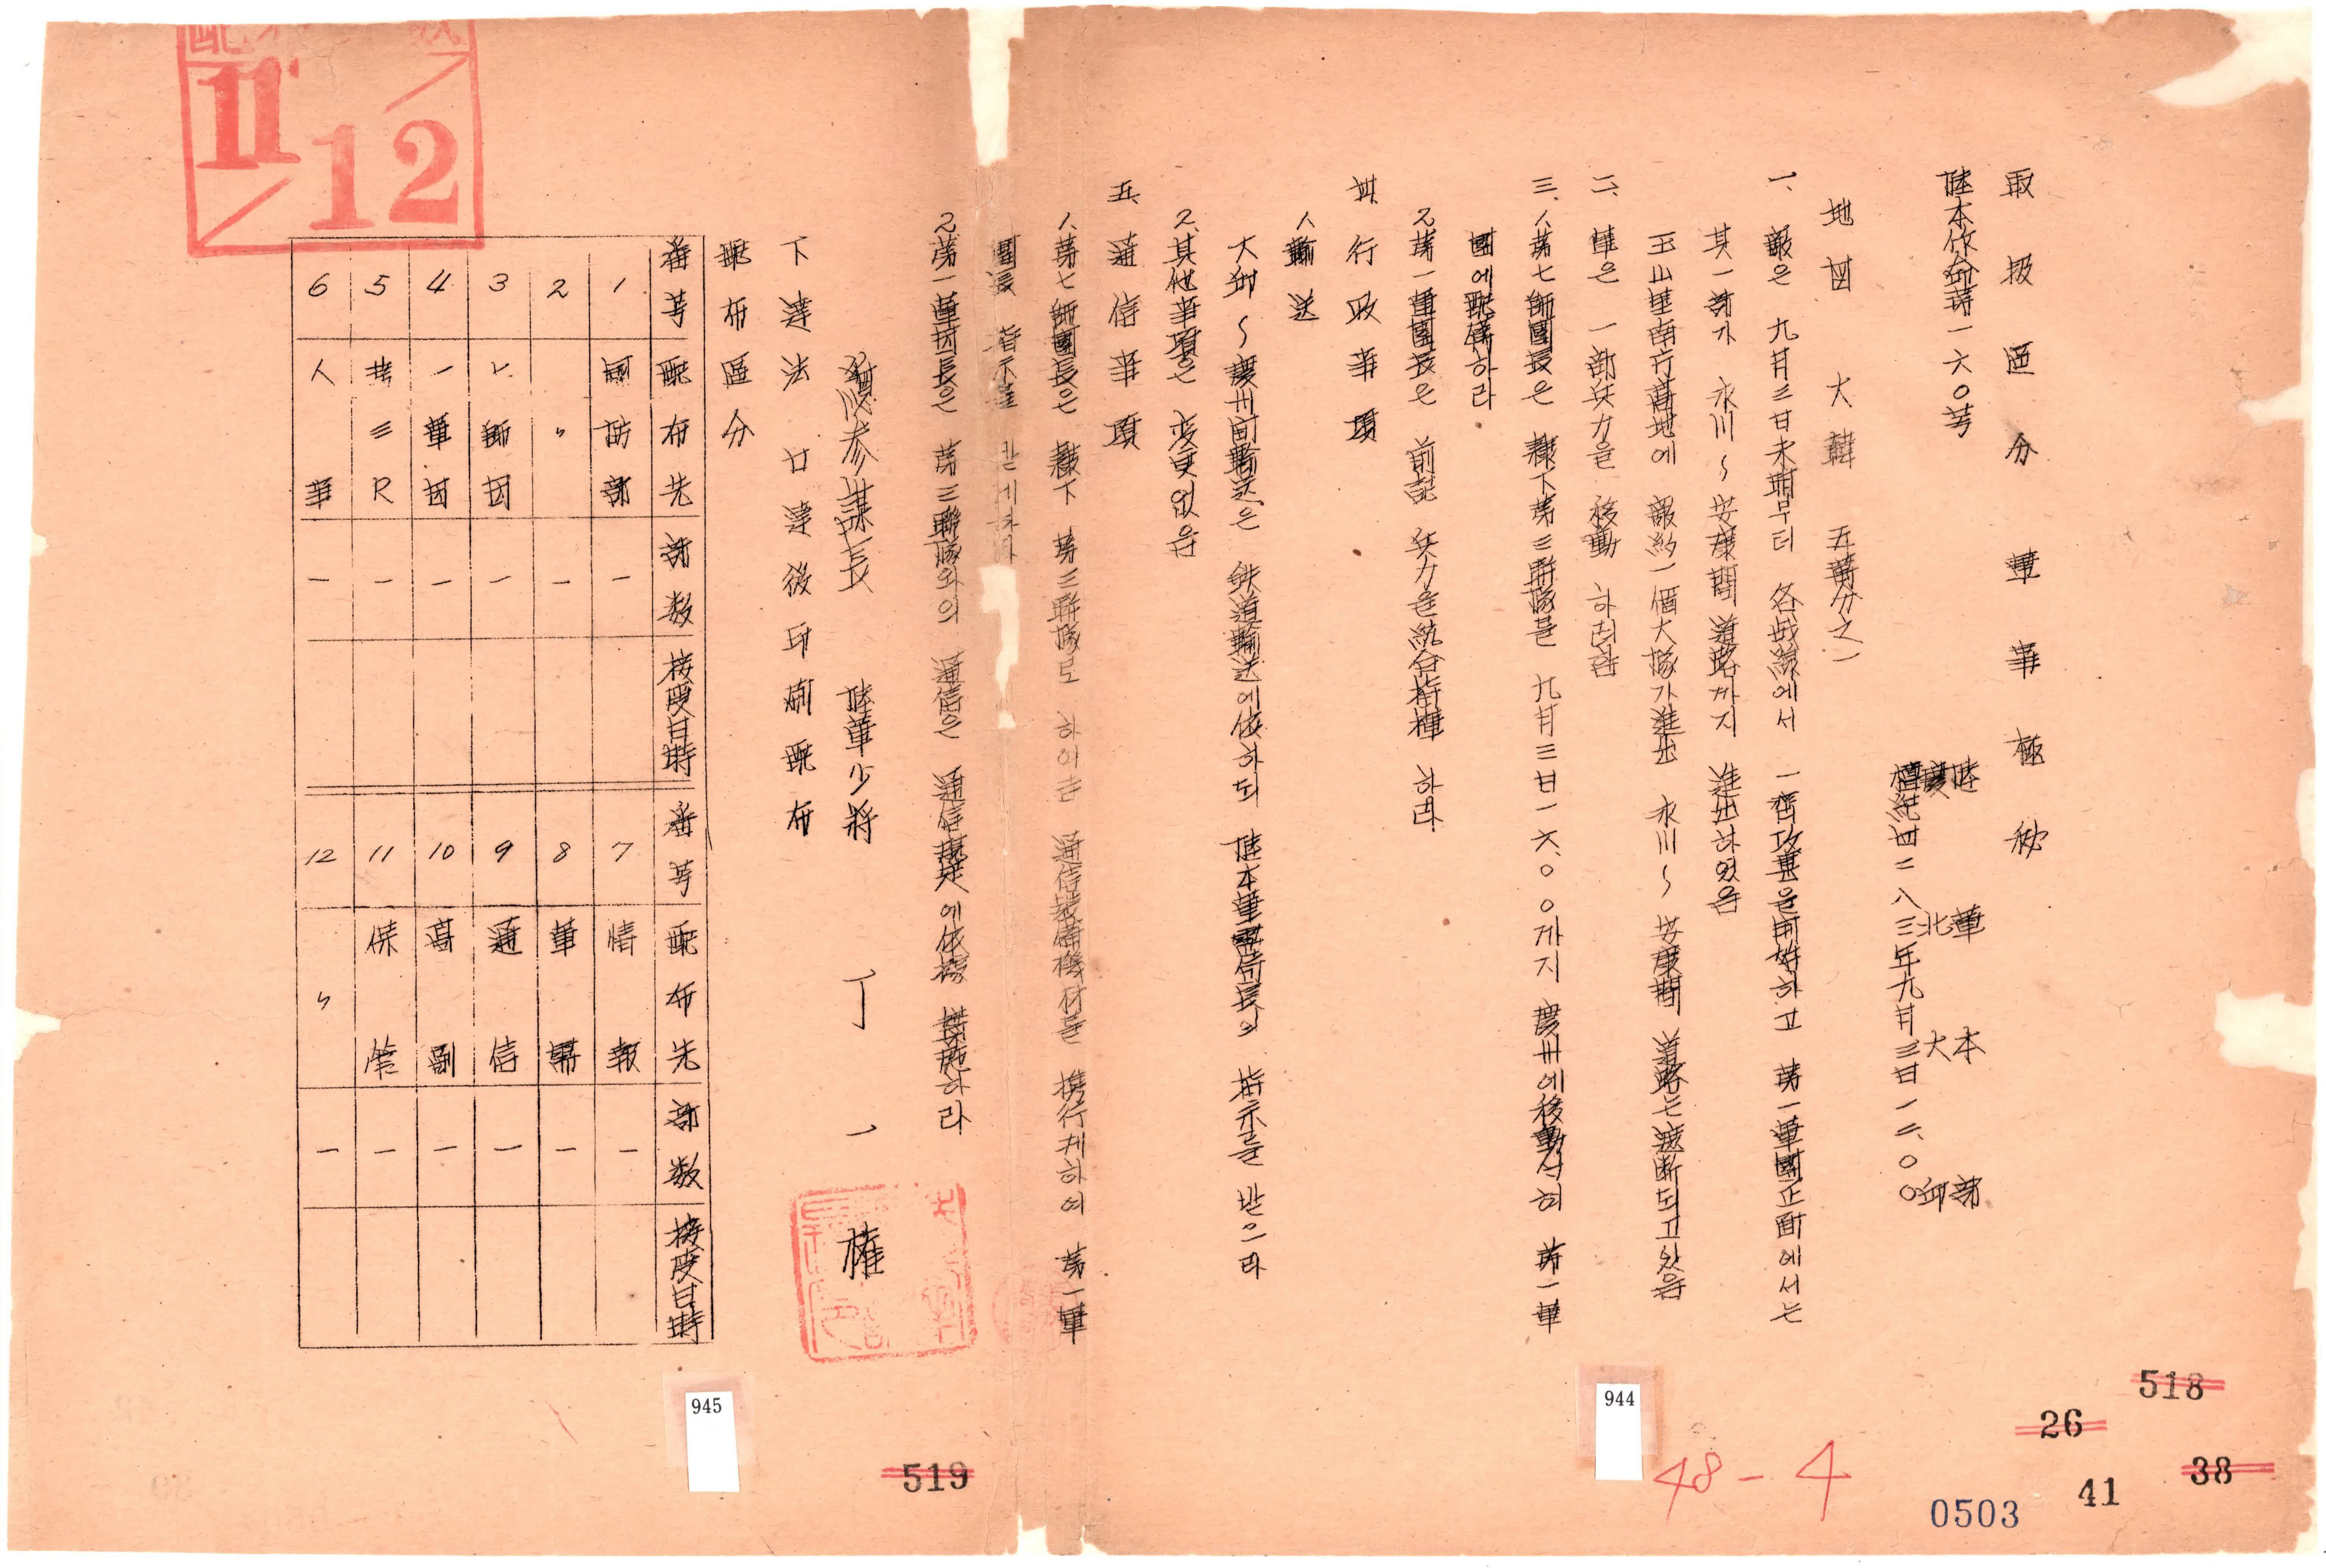 取扱區分 軍事極秘
陸本作命第一六〇号
陸軍本部
慶北大邱
檀紀四二八三年九月三日一二、〇〇
地図 大韓 五萬分之一
一、敵은 九月三日未明부터 各戰線에서 一齊攻擊을開始하고 第一軍團正面에서는
其一部가 永川~安康間 道路까지 進出하였음
玉山里南方高地에 敵約一個大隊가進出 永川~安康間 道路는遮断되고있음
二、軍은 一部兵力을 移動 하려함
三、1、第七師團長은 隷下第三聯隊를 九月三日一六、〇〇까지 慶州에移動식혀 第一軍
團에配屬하라
2、第一軍團長은 前記 兵力을統合指揮 하라
四、行政事項
1、輸送
大邱~慶州間輸送은 鉄道輸送에依하되 陸本軍需局長의 指示를 받으라
2、其他事項은 変更없음
五、通信事項
1、第七師團長은 隷下 第三聯隊로 하여금 通信裝備機材를 携行케하여 第一軍
團長 指示를 받게하라
2、第一軍団長은 第三聯隊와의 通信은 通信規定에依據 実施하라
總參謀長 陸軍少將 丁一權
下達法 口達後印刷配布
配布區分
番号 配布先 部数 接受日時 番号 配布先 部数 接受日時
1 國防部 一 7 情報 一
2 〃 一 8 軍需 一
3 7師団 一 9 通信 一
4 一軍団 一 10 高副 一
5 共三R 一 11 作 一
6 人事 一 12 〃 一
11/12
945
944
519
518
26
38
41
48-4
0503